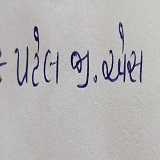 પટેલ જી. એસ